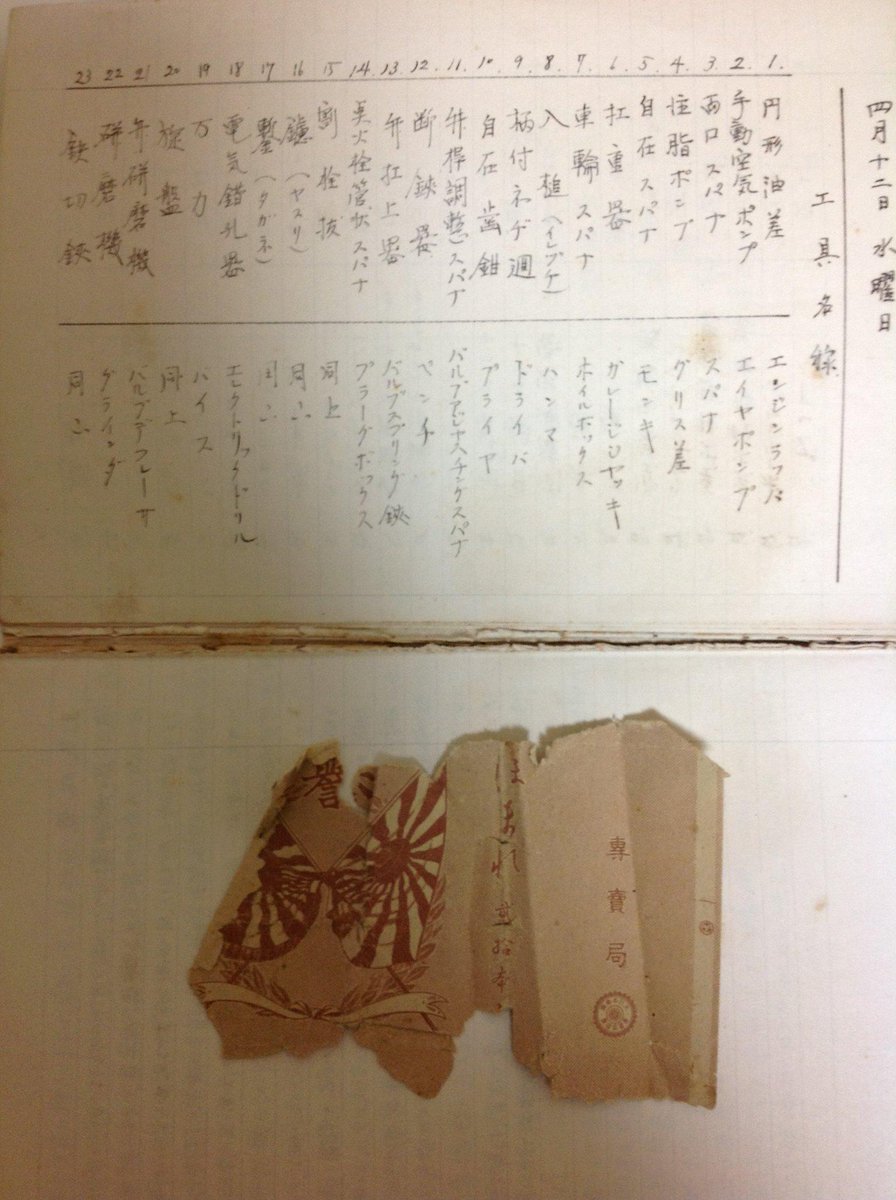 四月十二日 水曜日
工具名称
1. 円形油差 エンジンラッパ
2. 手動空気ポンプ エイヤポンプ
3. 両口スパナ スパナ
4. 注脂ポンプ グリス差
5. 自在スパナ モンキ
6. 扛重器 ガレージジャッキ
7. 車輪スパナ ホイルボックス
8. 入槌(イレヅケ) ハンマ
9. 柄付ネヂ廻 ドライバ
10. 自在歯鉗 プライヤ
11. 弁桿調整スパナ スパナ
12. 断鋏器 ペンチ
13. 弁扛上器 バルブスプリング鋏
14. 点火栓管状スパナ プラーグボックス
15 割栓抜 同上
16 鑢(ヤスリ) 同上
17 鏨(タガネ) 同上
18 電気錯孔器 エレクトリックドリル
19 万力 バイス
20 旋盤 同上
21 弁研磨機 バルブデフレーサ
22 研磨機 グラインダ
23 鉄切鋏 同上
譽
ほまれ 弐拾本入
專賣局